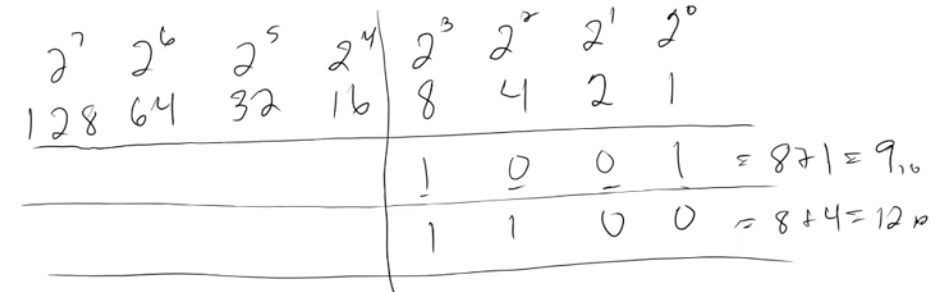 2⁷ 2⁶ 2⁵ 2⁴ 2³ 2² 2¹ 2⁰
128 64 32 16 8 4 2 1
1 0 0 1 = 8+1 = 9₁₀
1 1 0 0 = 8+4 = 12₁₀